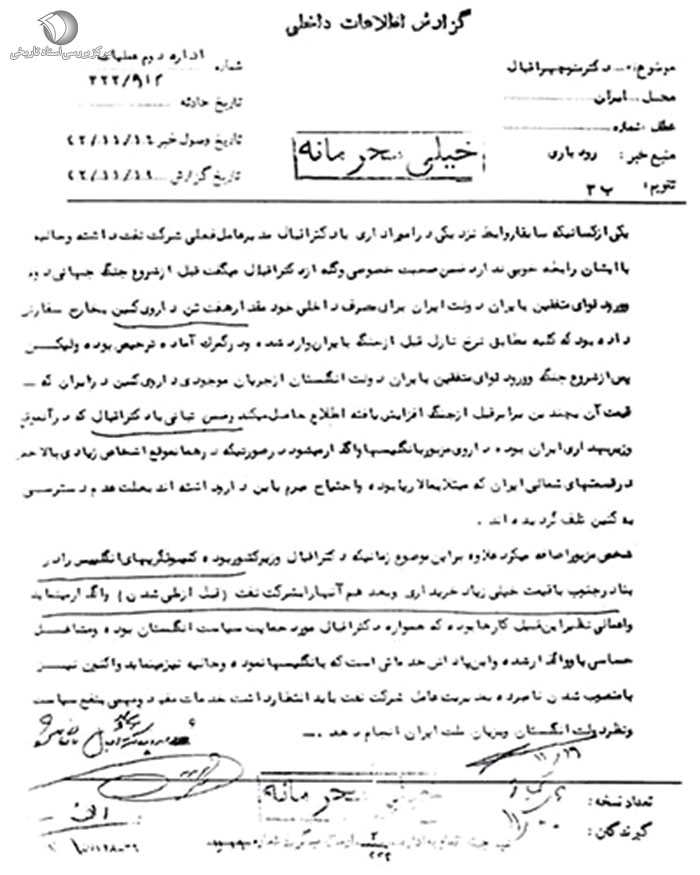 گزارش اطلاعات داخلی
مرکز بررسی اسناد تاریخی
موضوع: دکتر منوچهر اقبال
محل ایران
عطف شماره
منبع خبر: رودباری
تقویم: ب ۳
شماره اداره دوم عملیات
۳۲۲/۹۱۲
تاریخ حادثه
تاریخ وصول خبر
تاریخ گزارش
خیلی محرمانه
یکی از کسانیکه سابقا روابط نزدیکی در امور اداری با دکتر اقبال مدیرعامل فعلی شرکت نفت داشته و حالیه
با ایشان رابطه خوبی ندارد ضمن صحبت خصوصی و گله از دکتر اقبال میگفت قبل از شروع جنگ جهانی دوم
و ورود قوای متفقین بایران دولت ایران برای مصرف داخلی خود مقدار هفت تن داروی کنین بخارج سفارش
داده بود که کلیه مطابق نرخ نازل قبل از جنگ بایران وارد شده و در گمرک آماده ترخیص بوده ولیکن
پس از شروع جنگ و ورود قوای متفقین بایران دولت انگلستان از جریان موجودی داروی کنین در ایران که
قیمت آن بچندین برابر قبل از جنگ افزایش یافته اطلاع حاصل میکند و ضمن تبانی با دکتر اقبال که در آنموقع
وزیر بهداری ایران بوده داروی مزبور بانگلیسها واگذار میشود در صورتیکه در همانموقع اشخاص زیادی بالاخص
در قسمتهای شمالی ایران که مبتلا بمالاریا بوده و احتیاج مبرم باین دارو داشته اند بعلت عدم دسترسی
به کنین تلف گردیده اند.
شخص مزبور اضافه میکرد علاوه بر این موضوع زمانیکه دکتر اقبال وزیر کشور بوده کمپوتگریهای انگلیس را در
بنادر جنوب با قیمت خیلی زیاد خریداری و بعد هم آنها را بشرکت نفت (قبل از ملی شدن) واگذار مینماید
و اعمالی نظیر این قبیل کارها بوده که همواره دکتر اقبال مورد حمایت سیاست انگلستان بوده و مشاغل
حساسی باو واگذار شده و این پاداش خدماتی است که بانگلیسها نموده و حالیه نیز مینماید و اکنون نیز
با منصوب شدن نامبرده بمدیریت عامل شرکت نفت باید انتظار داشت خدمات مفید و مهمی بنفع سیاست
و نظر دولت انگلستان و بزیان ملت ایران انجام دهد.
۱۱/۱۹
خیلی محرمانه
تعداد نسخه:
گیرندگان:
الف